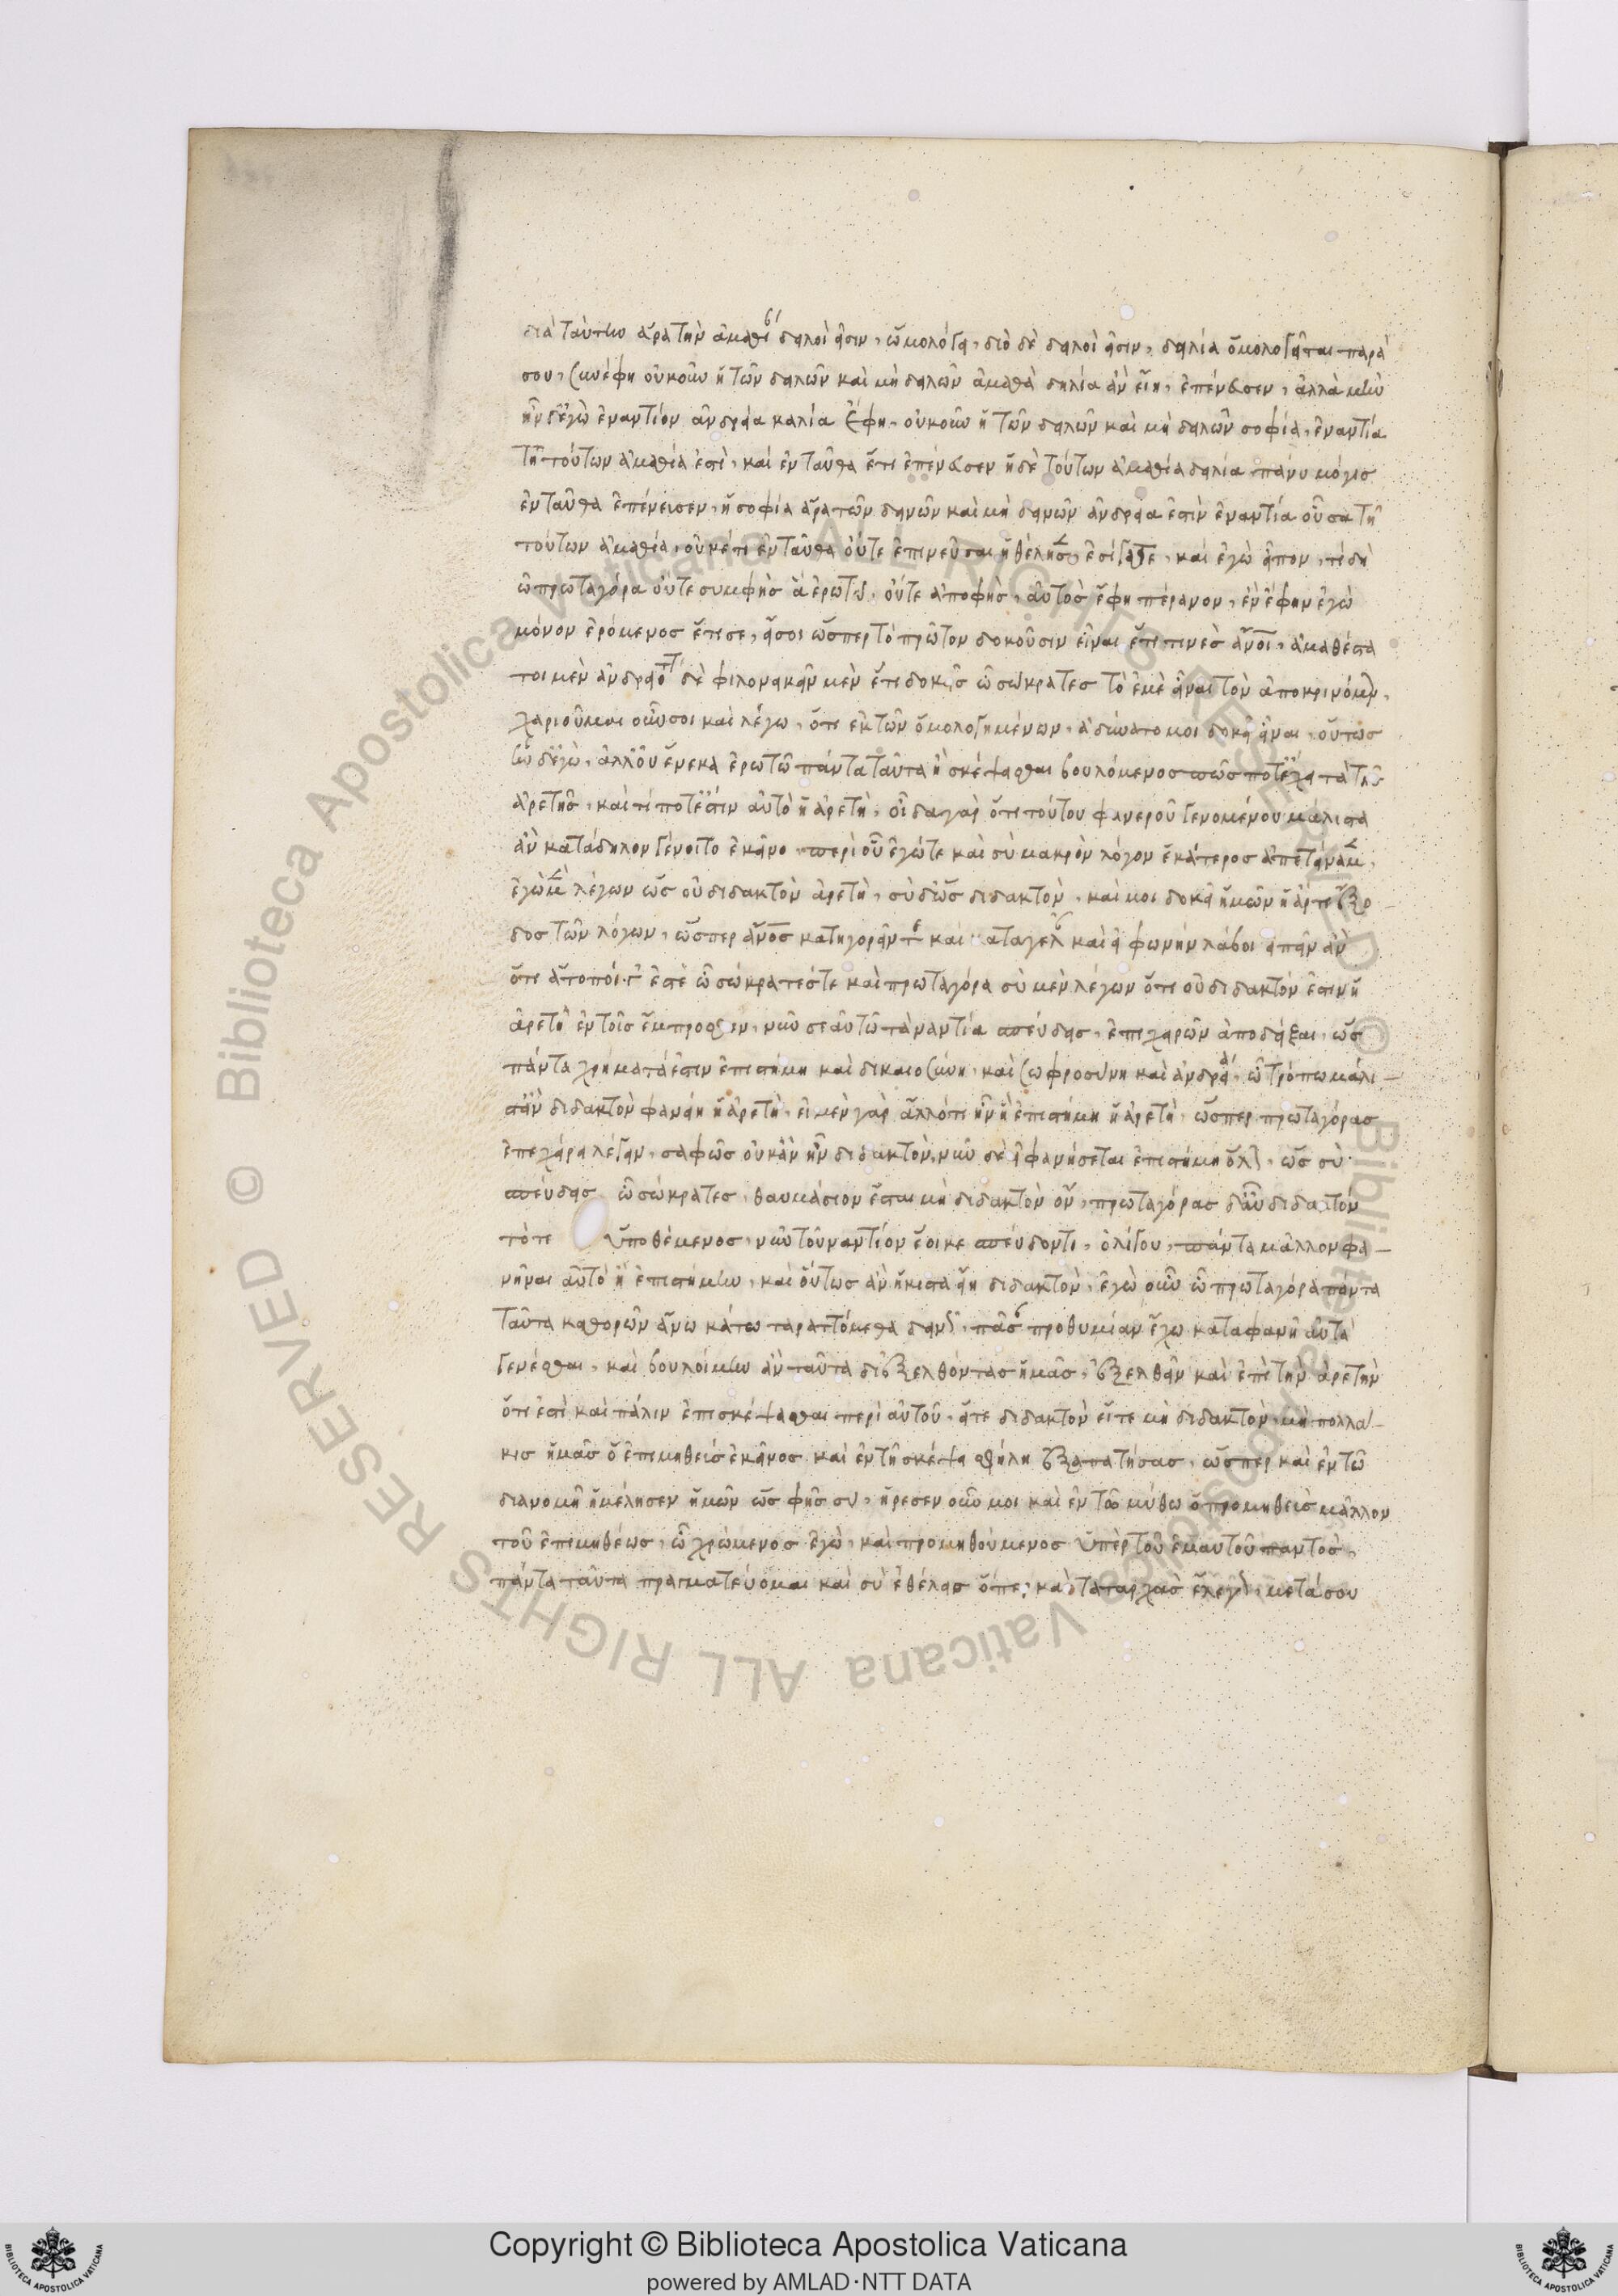 διὰ ταύτην ἄρα τὴν ἀμαθίαν δειλοί εἰσιν, ὡμολόγει, διὸ δὲ δειλοί εἰσιν, δειλία ὁμολογεῖται παρὰ
σου, συνέφη οὐκοῦν ἡ τῶν δειλῶν καὶ μὴ δειλῶν ἀμαθία δηλία ἂν εἴη, ἐπένευσεν, ἀλλὰ μὴν
ἦν δ' ἐγὼ ἐναντίον ἀνδρεία καλία ἔφη, οὐκοῦν ἡ τῶν δειλῶν καὶ μὴ δειλῶν σοφία, ἐναντία
τῆ τούτων ἀμαθία ἐστὶ, καὶ ἐνταῦθα ἔτι ἐπένευσεν ἡ δὲ τούτων ἀμαθία δειλία πάνυ μόγισ
ἐνταῦθα ἐπένεισεν, ἡ σοφία ἄρα τῶν δεινῶν καὶ μὴ δεινῶν ἀνδρεία ἐστὶν ἐναντία οὖσα τῆ
τούτων ἀμαθία, οὐκέτι ἐνταῦθα οὔτε ἐπινεῦσαι ἠθέλησεν, ἐσίγατε, καὶ ἐγὼ εἶπον, τί δὴ
ὦ πρωταγόρα οὔτε συμφὴσ ἃ ἐρωτῶ, οὔτε ἀποφήσ, αὐτὸσ ἔφη πέρανον, ἐν ἔφην ἐγὼ
μόνον ἐρόμενοσ ἔτι σε, εἴ σοι ὥσπερ τὸ πρῶτον δοκοῦσιν εἶναι ἔτι τινεσ ἄνοι, ἀμαθέστα
τοι μὲν ἀνδρειότατοι δὲ φιλονεικεῖν μὲν ἔτι δοκεῖσ ὦ σώκρατεσ τὸ ἐμὲ εἶναι τὸν ἀποκρινόμενον,
χαριοῦμαι οὖν σοι καὶ λέγω, ὅτι ἐκ τῶν ὁμολογημένων, ἀδύνατο μοι δοκεῖ εἶναι, οὔτωσ
ἦν δ' ἐγὼ, ἀλλου ἕνεκα ἐρωτῶ πάντα ταῦτα ἢ σκέψασθαι βουλόμενοσ πῶσ ποτ' ἔχει τὰ τῆσ
ἀρετῆσ, καὶ τί ποτ' ἐστὶν αὐτὸ ἡ ἀρετὴ, οἶδα γὰρ ὅτι τούτου φανεροῦ γενομένου μάλιστα
ἂν κατάδηλον γένοιτο ἐκεῖνο, περὶ οὗ ἐγώ τε καὶ σὺ μακρὸν λόγον ἑκάτεροσ ἀπετείναμεν,
ἐγὼ μὲν λέγων ὡσ οὐ διδακτὸν ἀρετὴ, σὺ δ' ὡσ διδακτὸν, καὶ μοι δοκεῖ ἡμῶν ἡ ἄρτι ἔξο
δοσ τῶν λόγων, ὥσπερ ἄνοσ κατηγορεῖν τε καὶ καταγελᾶν καὶ εἰ φωνὴν λάβοι εἰπεῖν ἂν
ὅτι ἄτοποί γ' ἐστὲ ὦ σώκρατέσ τε καὶ πρωταγόρα σὺ μὲν λέγων ὅτι οὐ διδακτόν ἐστιν ἡ
ἀρετὴ ἐν τοῖσ ἔμπροσθεν, νῦν σεαυτῶ τἀναντία σπεύδεισ, ἐπιχειρῶν ἀποδεῖξαι, ὡσ
πάντα χρήματά ἐστιν ἐπιστήμη καὶ δικαιοσύνη, καὶ σωφροσύνη καὶ ἀνδρεία, ὧ τρόπω μάλι
στ' ἂν διδακτὸν φανείη ἡ ἀρετὴ, εἰ μὲν γὰρ ἄλλότι ἦν ἢ ἐπιστήμη ἡ ἀρετὴ, ὥσπερ πρωταγόρασ
ἐπεχείρα λέγειν, σαφῶσ οὐκ ἂν ἦν διδακτὸν, νῦν δὲ εἰ φανήσεται ἐπιστήμη ὅλον, ὡσ σὺ
σπεύδεισ ὦ σώκρατεσ, θαυμάσιον ἔσται μὴ διδακτὸν ὂν, πρωταγόρασ δ' αὖ διδακτὸν
τότε ὑποθέμενοσ, νῦν τοὐναντίον ἔοικε σπεύδοντι, ὀλίγου, πάντα μᾶλλον φα
νῆναι αὐτὸ ἢ ἐπιστήμην, καὶ οὕτωσ ἂν ἥκιστα εἴη διδακτὸν, ἐγὼ οὖν ὦ πρωταγόρα πάντα
ταῦτα καθορῶν ἄνω κάτω ταραττόμεθα δεινῶσ, πᾶσαν προθυμίαν ἔχω καταφανῆ αὐτὰ
γενέσθαι, καὶ βουλοίμην ἂν ταῦτα διεξελθόντασ ἡμᾶσ, ἐξελθεῖν καὶ ἐπὶ τὴν ἀρετὴν
ὅτι ἐστὶ καὶ πάλιν ἐπισκέψασθαι περὶ αὐτοῦ, εἴτε διδακτὸν εἴτε μὴ διδακτὸν, μὴ πολλά
κισ ἡμᾶσ ὁ ἐπιμηθεὺσ ἐκεῖνοσ καὶ ἐν τῆ σκέψει σφήλη ἐξαπατήσασ, ὥσπερ καὶ ἐν τῶ
διανομῆ ἠμέλησεν ἡμῶν ὡσ φῆσ συ, ἤρεσεν οὖν μοι καὶ ἐν τῶ μύθω ὁ προμηθεὺσ μᾶλλον
τοῦ ἐπιμηθέωσ, ὧ χρώμενοσ ἐγὼ, καὶ προμηθούμενοσ ὑπὲρ τοῦ ἐμαυτοῦ παντὸσ,
πάντα ταῦτα πραγματεύομαι καὶ σὺ ἐθέλεισ ὅπερ καὶ καταρχὰσ ἔλεγον, μετὰ σου
Copyright © Biblioteca Apostolica Vaticana
powered by AMLAD·NTT DATA